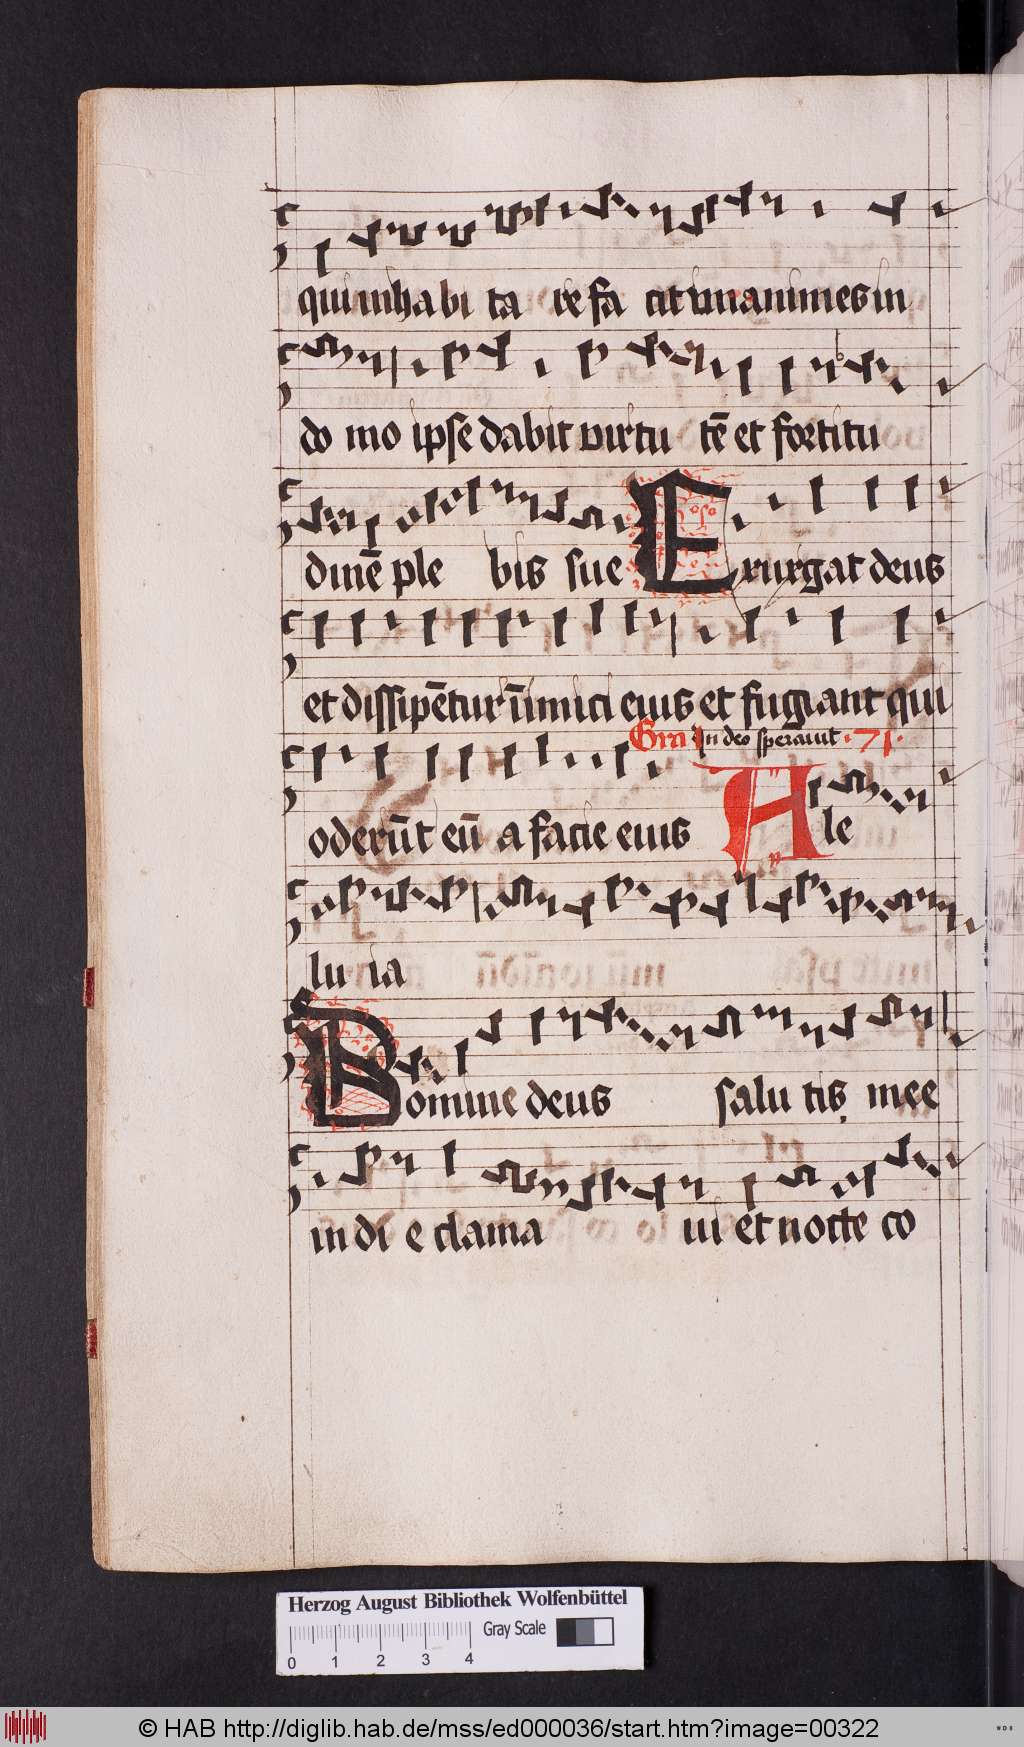 qui inhabi ta re fa cit unanimes in
do mo ipse dabit virtu tē et fortitu
dinē ple bis sue Exurgat deus
et dissipētur inīmici eius et fugiant qui
Gra In deo speravit · 71 ·
oderūt eū a facie eius Ale
lu ia
Domine deus salu tis mee
in di e clama vi et nocte co
Herzog August Bibliothek Wolfenbüttel
Gray Scale
0 1 2 3 4
© HAB http://diglib.hab.de/mss/ed000036/start.htm?image=00322